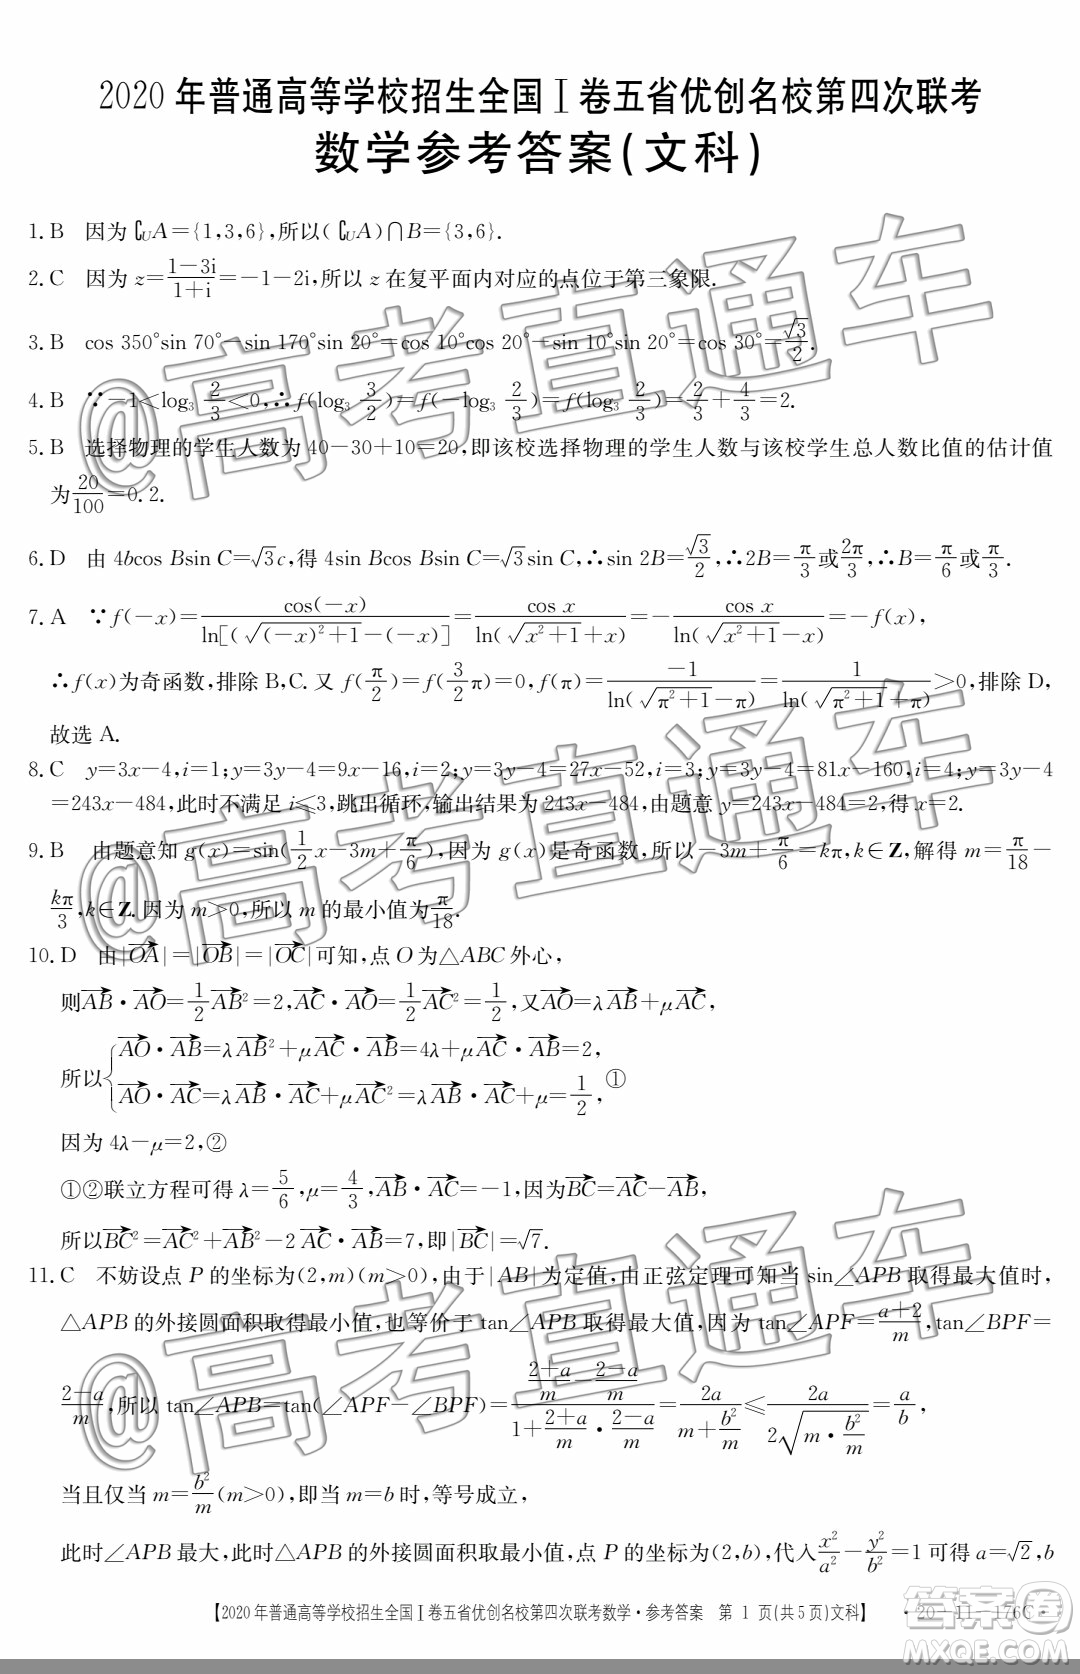 2020 年普通高等学校招生全国Ⅰ卷五省优创名校第四次联考
数学参考答案(文科)
1. B 因为 ∁UA={1,3,6},所以(∁UA)∩B={3,6}.
2. C 因为 z=(1-3i)/(1+i)=-1-2i,所以 z 在复平面内对应的点位于第三象限.
3. B cos 350°sin 70°-sin 170°sin 20°=cos 10°cos 20°-sin 10°sin 20°=cos 30°=√3/2.
4. B ∵-1<log₃ 2/3<0,∴f(log₃ 3/2)=f(-log₃ 2/3)=f(log₃ 2/3)=2/3+4/3=2.
5. B 选择物理的学生人数为 40-30+10=20,即该校选择物理的学生人数与该校学生总人数比值的估计值
为20/100=0.2.
6. D 由 4bcos Bsin C=√3c,得 4sin Bcos Bsin C=√3sin C,∴sin 2B=√3/2,∴2B=π/3或2π/3,∴B=π/6或π/3.
7. A ∵f(-x)=cos(-x)/ln[(√((-x)²+1)-(-x)]=cos x/ln(√(x²+1)+x)=-cos x/ln(√(x²+1)-x)=-f(x),
∴f(x)为奇函数,排除 B,C.又 f(π/2)=f(3/2π)=0,f(π)=-1/ln(√(π²+1)-π)=1/ln(√(π²+1)+π)>0,排除 D,
故选 A.
8. C y=3x-4,i=1;y=3y-4=9x-16,i=2;y=3y-4=27x-52,i=3;y=3y-4=81x-160,i=4;y=3y-4
=243x-484,此时不满足 i≤3,跳出循环,输出结果为 243x-484,由题意 y=243x-484=2,得 x=2.
9. B 由题意知 g(x)=sin(1/2x-3m+π/6),因为 g(x)是奇函数,所以-3m+π/6=kπ,k∈Z,解得 m=π/18-
kπ/3,k∈Z.因为 m>0,所以 m 的最小值为π/18.
10. D 由|OA→|=|OB→|=|OC→|可知,点 O 为△ABC 外心,
则AB→·AO→=1/2AB→²=2,AC→·AO→=1/2AC→²=1/2,又AO→=λAB→+μAC→,
所以{AO→·AB→=λAB→²+μAC→·AB→=4λ+μAC→·AB→=2,
AO→·AC→=λAB→·AC→+μAC→²=λAB→·AC→+μ=1/2, ①
因为 4λ-μ=2,②
①②联立方程可得 λ=5/6,μ=4/3,AB→·AC→=-1,因为BC→=AC→-AB→,
所以BC→²=AC→²+AB→²-2AC→·AB→=7,即|BC→|=√7.
11. C 不妨设点 P 的坐标为(2,m)(m>0),由于|AB|为定值,由正弦定理可知当 sin∠APB 取得最大值时,
△APB 的外接圆面积取得最小值,也等价于 tan∠APB 取得最大值,因为 tan∠APF=(a+2)/m,tan∠BPF=
(2-a)/m,所以 tan∠APB=tan(∠APF-∠BPF)=((2+a)/m-(2-a)/m)/(1+(2+a)/m·(2-a)/m)=2a/(m+b²/m)≤2a/(2√(m·b²/m))=a/b,
当且仅当 m=b²/m(m>0),即当 m=b 时,等号成立,
此时∠APB 最大,此时△APB 的外接圆面积取最小值,点 P 的坐标为(2,b),代入x²/a²-y²/b²=1 可得 a=√2,b
【2020 年普通高等学校招生全国Ⅰ卷五省优创名校第四次联考数学·参考答案 第 1 页(共 5 页)文科】 ·20-11-176C·
@高考直通车
@高考直通车
@高考直通车
作业帮答案
MXQE.COM